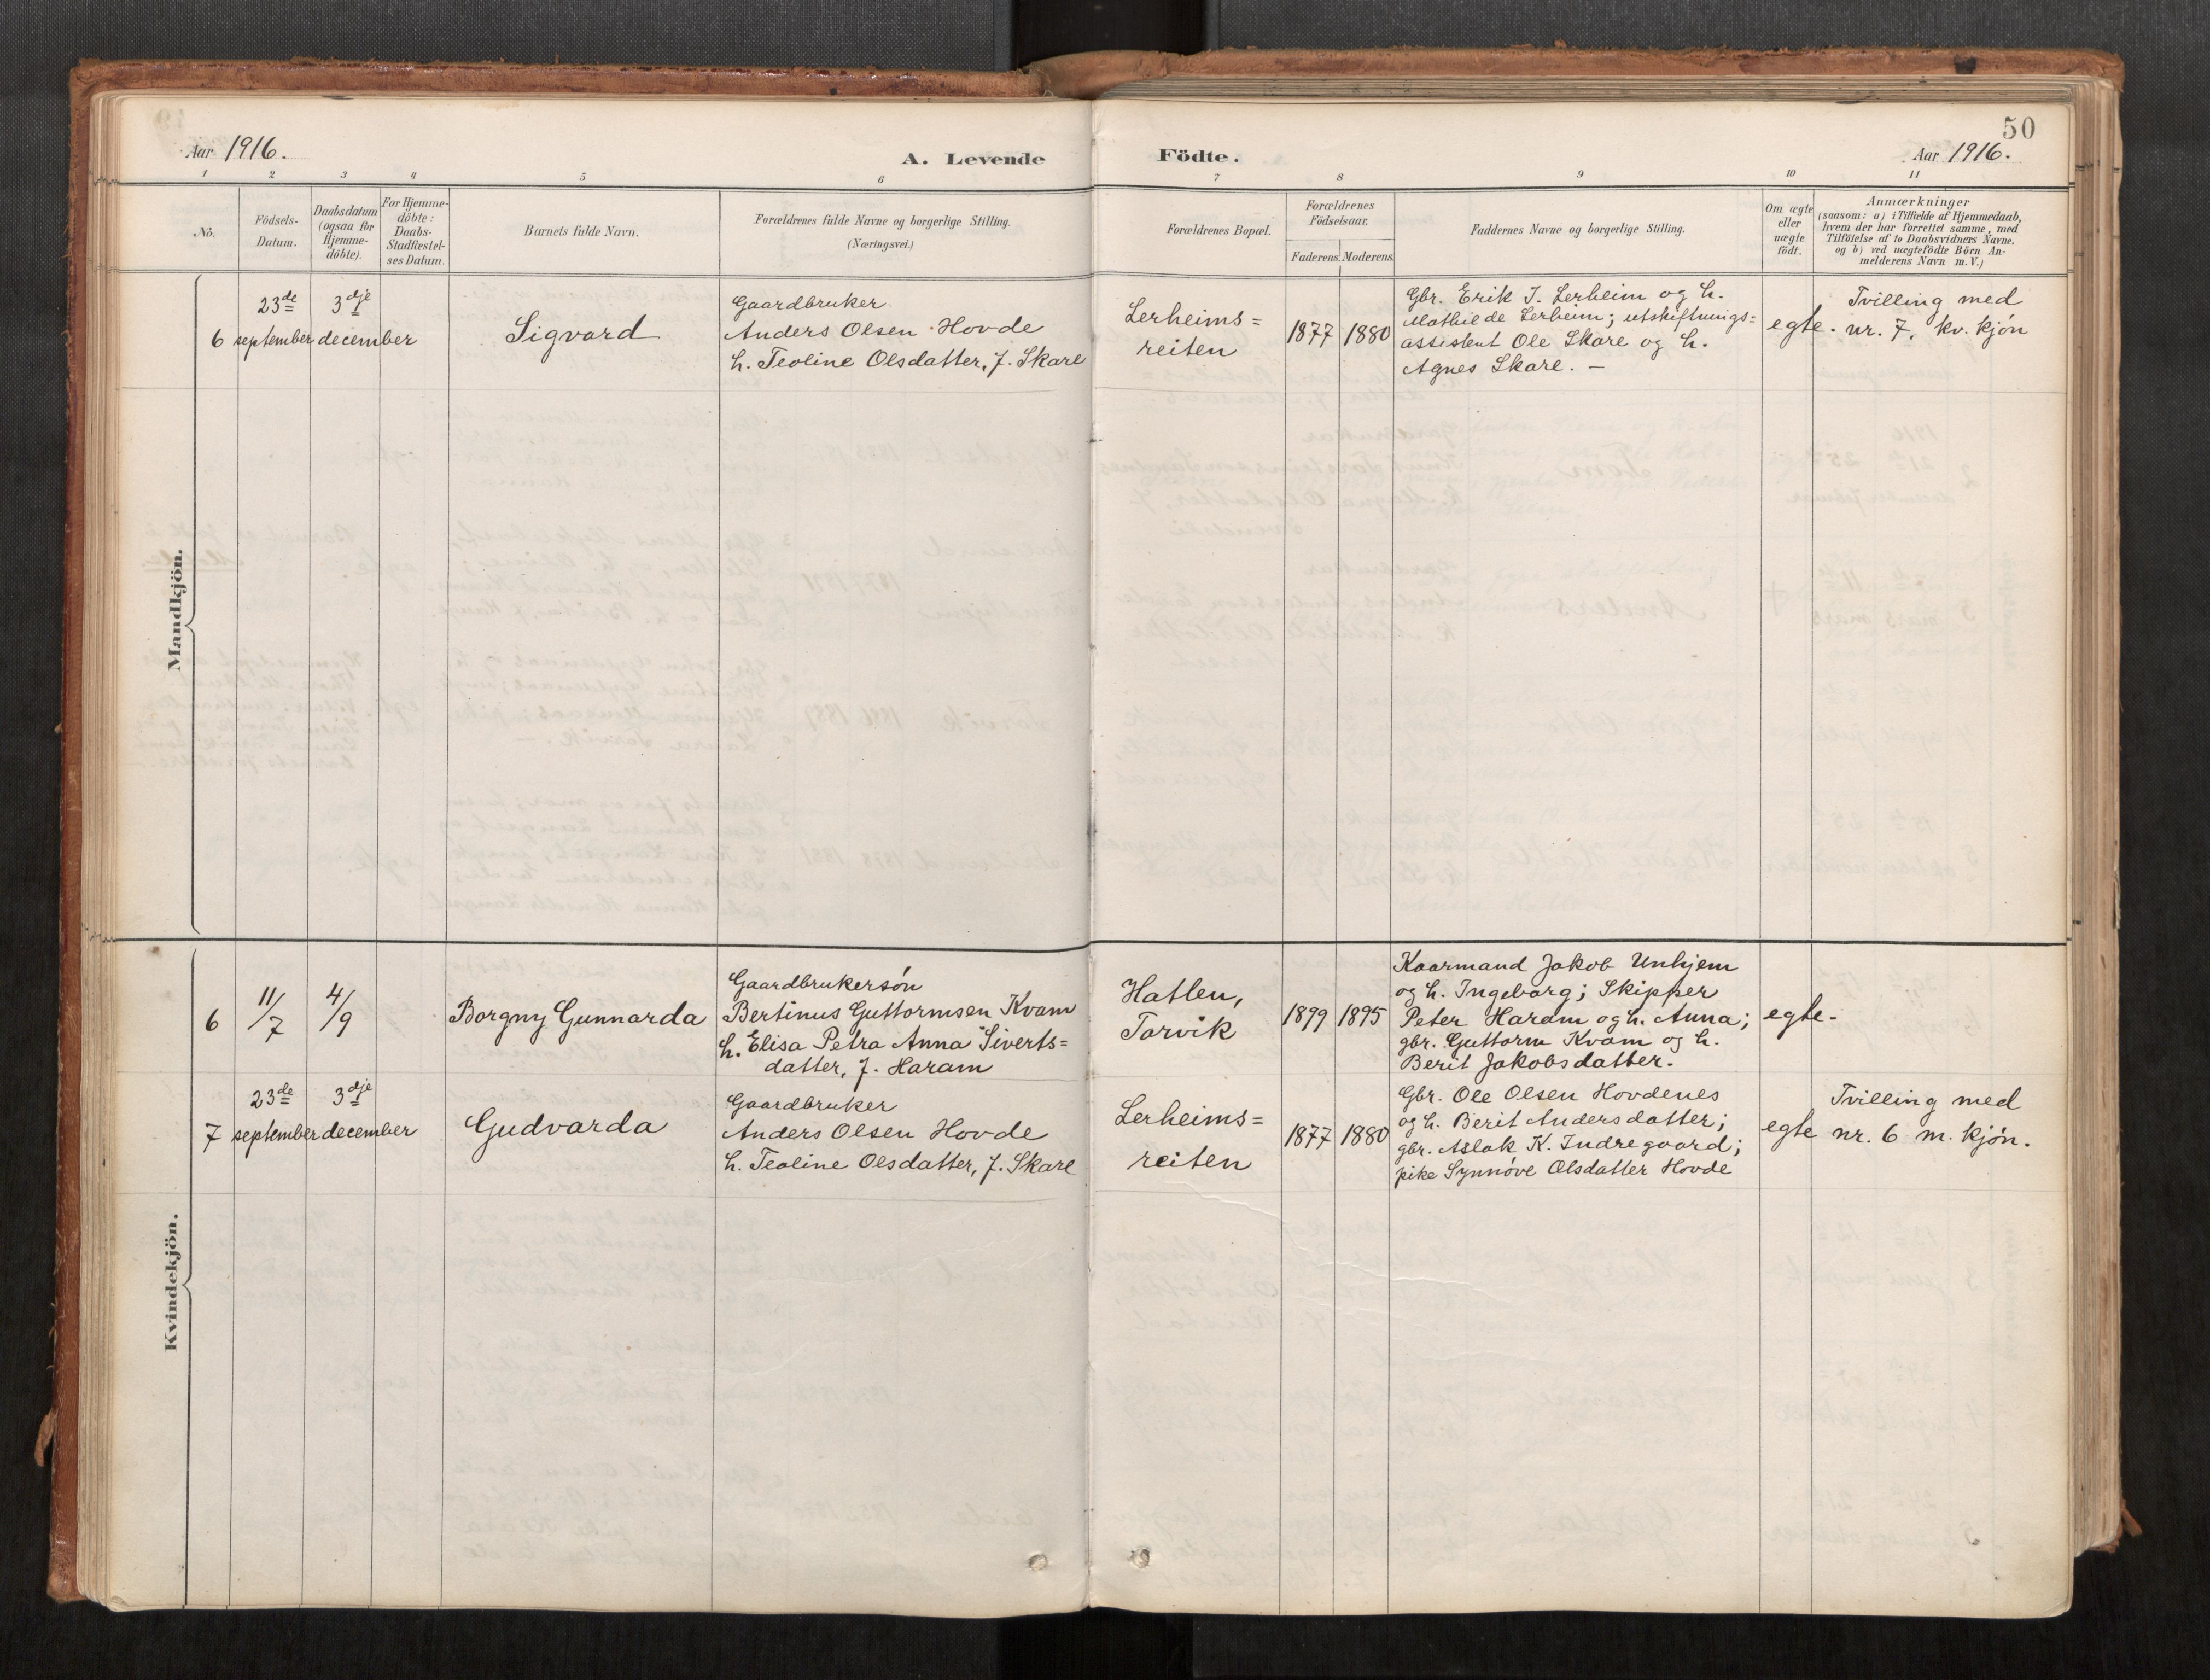 50
Aar 1916.
A. Levende
Födte.
Aar 1916.
1
2
3
4
5
6
7
8
9
10
11
No.
Födsels-
Datum.
Daabsdatum
(ogsaa for
Hjemme-
döbte).
For Hjemme-
döbte:
Daabs-
Stadfæstel-
ses Datum.
Barnets fulde Navn.
Forældrenes fulde Navne og borgerlige Stilling.
(Næringsvei.)
Forældrenes Bopæl.
Forældrenes
Födselsaar.
Faderens.
Moderens.
Faddernes Navne og borgerlige Stilling.
Om ægte
eller
uægte
födt.
Anmærkninger
(saasom: a) i Tilfælde af Hjemmedaab,
hvem der har forrettet samme, med
Tilföielse af to Daabsvidners Navne,
og b) ved uægtefödte Börn An-
melderens Navn m. V.)
Mandkjön.
6
23de
september
3dje
december
Sigvard
Gaardbruker
Anders Olsen Hovde
h. Teoline Olsdatter, f. Skare
Lerheims=
reiten
1877
1880
Gbr. Erik J. Lerheim og h.
Mathilde Lerheim; utskiftnings=
assistent Ole Skare og h.
Agnes Skare. –
egte.
Tvilling med
nr. 7. kv. kjön
Kvindekjön.
6
11/7
4/9
Borgny Gunnarda
Gaardbrukersön
Bertinus Guttormsen Kvam
h. Elisa Petra Anna Siverts=
datter, f. Haram
Hatlen,
Torvik
1899
1895
Kaarmand Jakob Unhjem
og h. Ingeborg; Skipper
Peter Haram og h. Anna;
gbr. Guttorm Kvam og h.
Berit Jakobsdatter.
egte.
7
23de
september
3dje
december
Gudvarda
Gaardbruker
Anders Olsen Hovde
h. Teoline Olsdatter, f. Skare
Lerheims=
reiten
1877
1880
Gbr. Ole Olsen Hovdenes
og h. Berit Andersdatter;
gbr. Aslak K. Indregaard;
pike Synnöve Olsdatter Hovde
egte
Tvilling med
nr. 6 m. kjön.